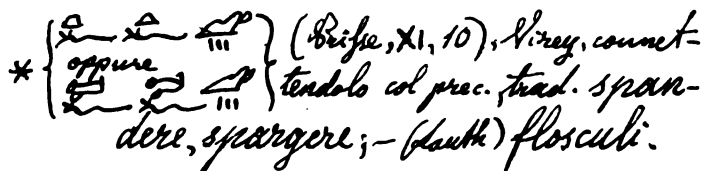 * (Prisse, XI, 10), Virey, connet-
oppure
tendolo col prec., trad. span-
dere, spargere; – (Lauth) flosculi.